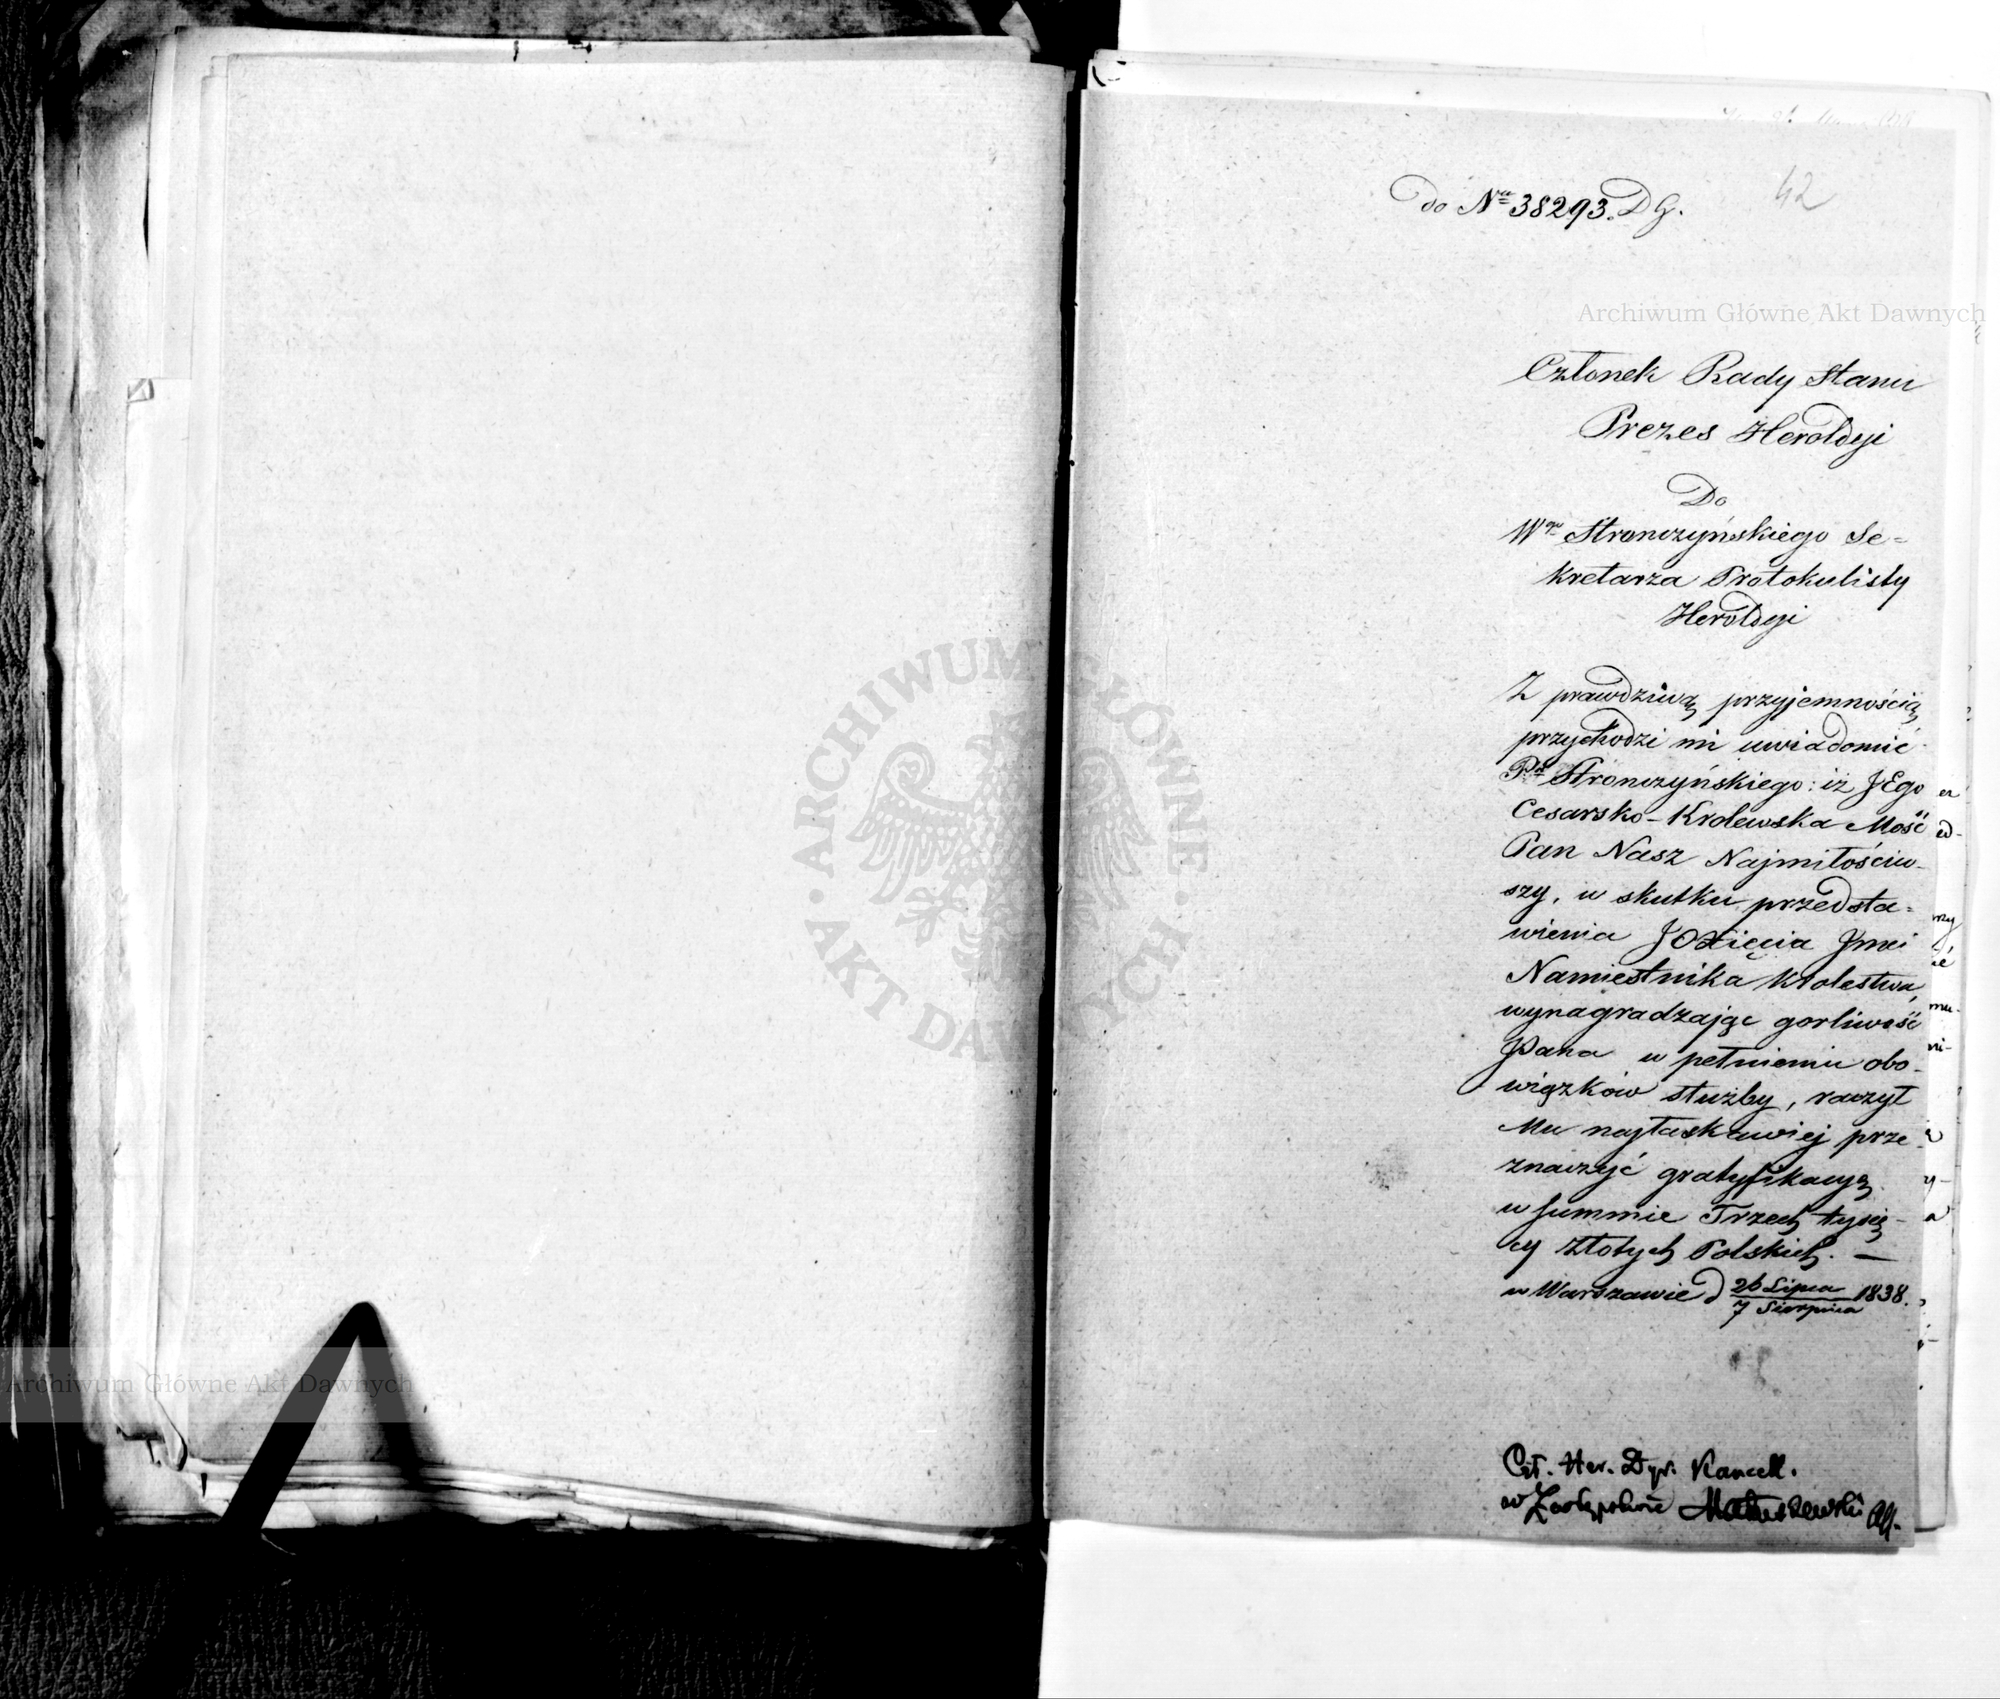 Do Nru 38293. D G.
42
Archiwum Główne Akt Dawnych
Członek Rady Stanu
Prezes Heroldyi
Do
Wgo Stronczyńskiego Se=
kretarza Protokulisty
Heroldyi
Z prawdziwą przyjemnością
przychodzi mi uwiadomić
Pa Stronczyńskiego: iż JEgo
Cesarsko-Krolewska Mość
Pan Nasz Najmiłościw-
szy, w skutku przedsta=
wienia JOXięcia Jmci
Namiestnika Krolestwa,
wynagradzając gorliwość
JPana w pełnieniu obo-
wiązków służby, raczył
Mu najłaskawiej prze-
znaczyć gratyfikacyą
w summie Trzech tysię-
cy Złotych Polskich. —
w Warszawie d 26 Lipca / 7 Sierpnia 1838.
Czł. Her. Dyr. Kancell.
w Zastępstwie Matuszewski
ARCHIWUM GŁÓWNE · AKT DAWNYCH ·
Archiwum Główne Akt Dawnych